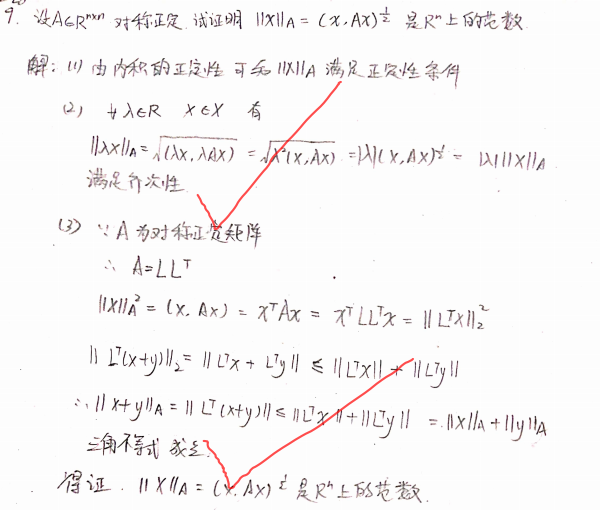 9. 设A∈R^{n×n} 对称正定. 试证明 ||x||_A = (x, Ax)^{1/2} 是R^n上的范数
解: (1) 由内积的正定性 可知 ||x||_A 满足正定性条件
(2) ∀ λ∈R x∈X 有
||λx||_A = √(λx, λAx) = √λ²(x, Ax) = |λ|(x, Ax)^{1/2} = |λ| ||x||_A
满足齐次性
(3) ∵ A 为对称正定矩阵
∴ A=LL^T
||x||_A^2 = (x, Ax) = x^T Ax = x^T LL^T x = ||L^T x||_2^2
||L^T(x+y)||_2 = ||L^T x + L^T y|| ≤ ||L^T x|| + ||L^T y||
∴ ||x+y||_A = ||L^T(x+y)|| ≤ ||L^T x|| + ||L^T y|| = ||x||_A + ||y||_A
三角不等式 成立.
得证. ||x||_A = (x, Ax)^{1/2} 是R^n上的范数.